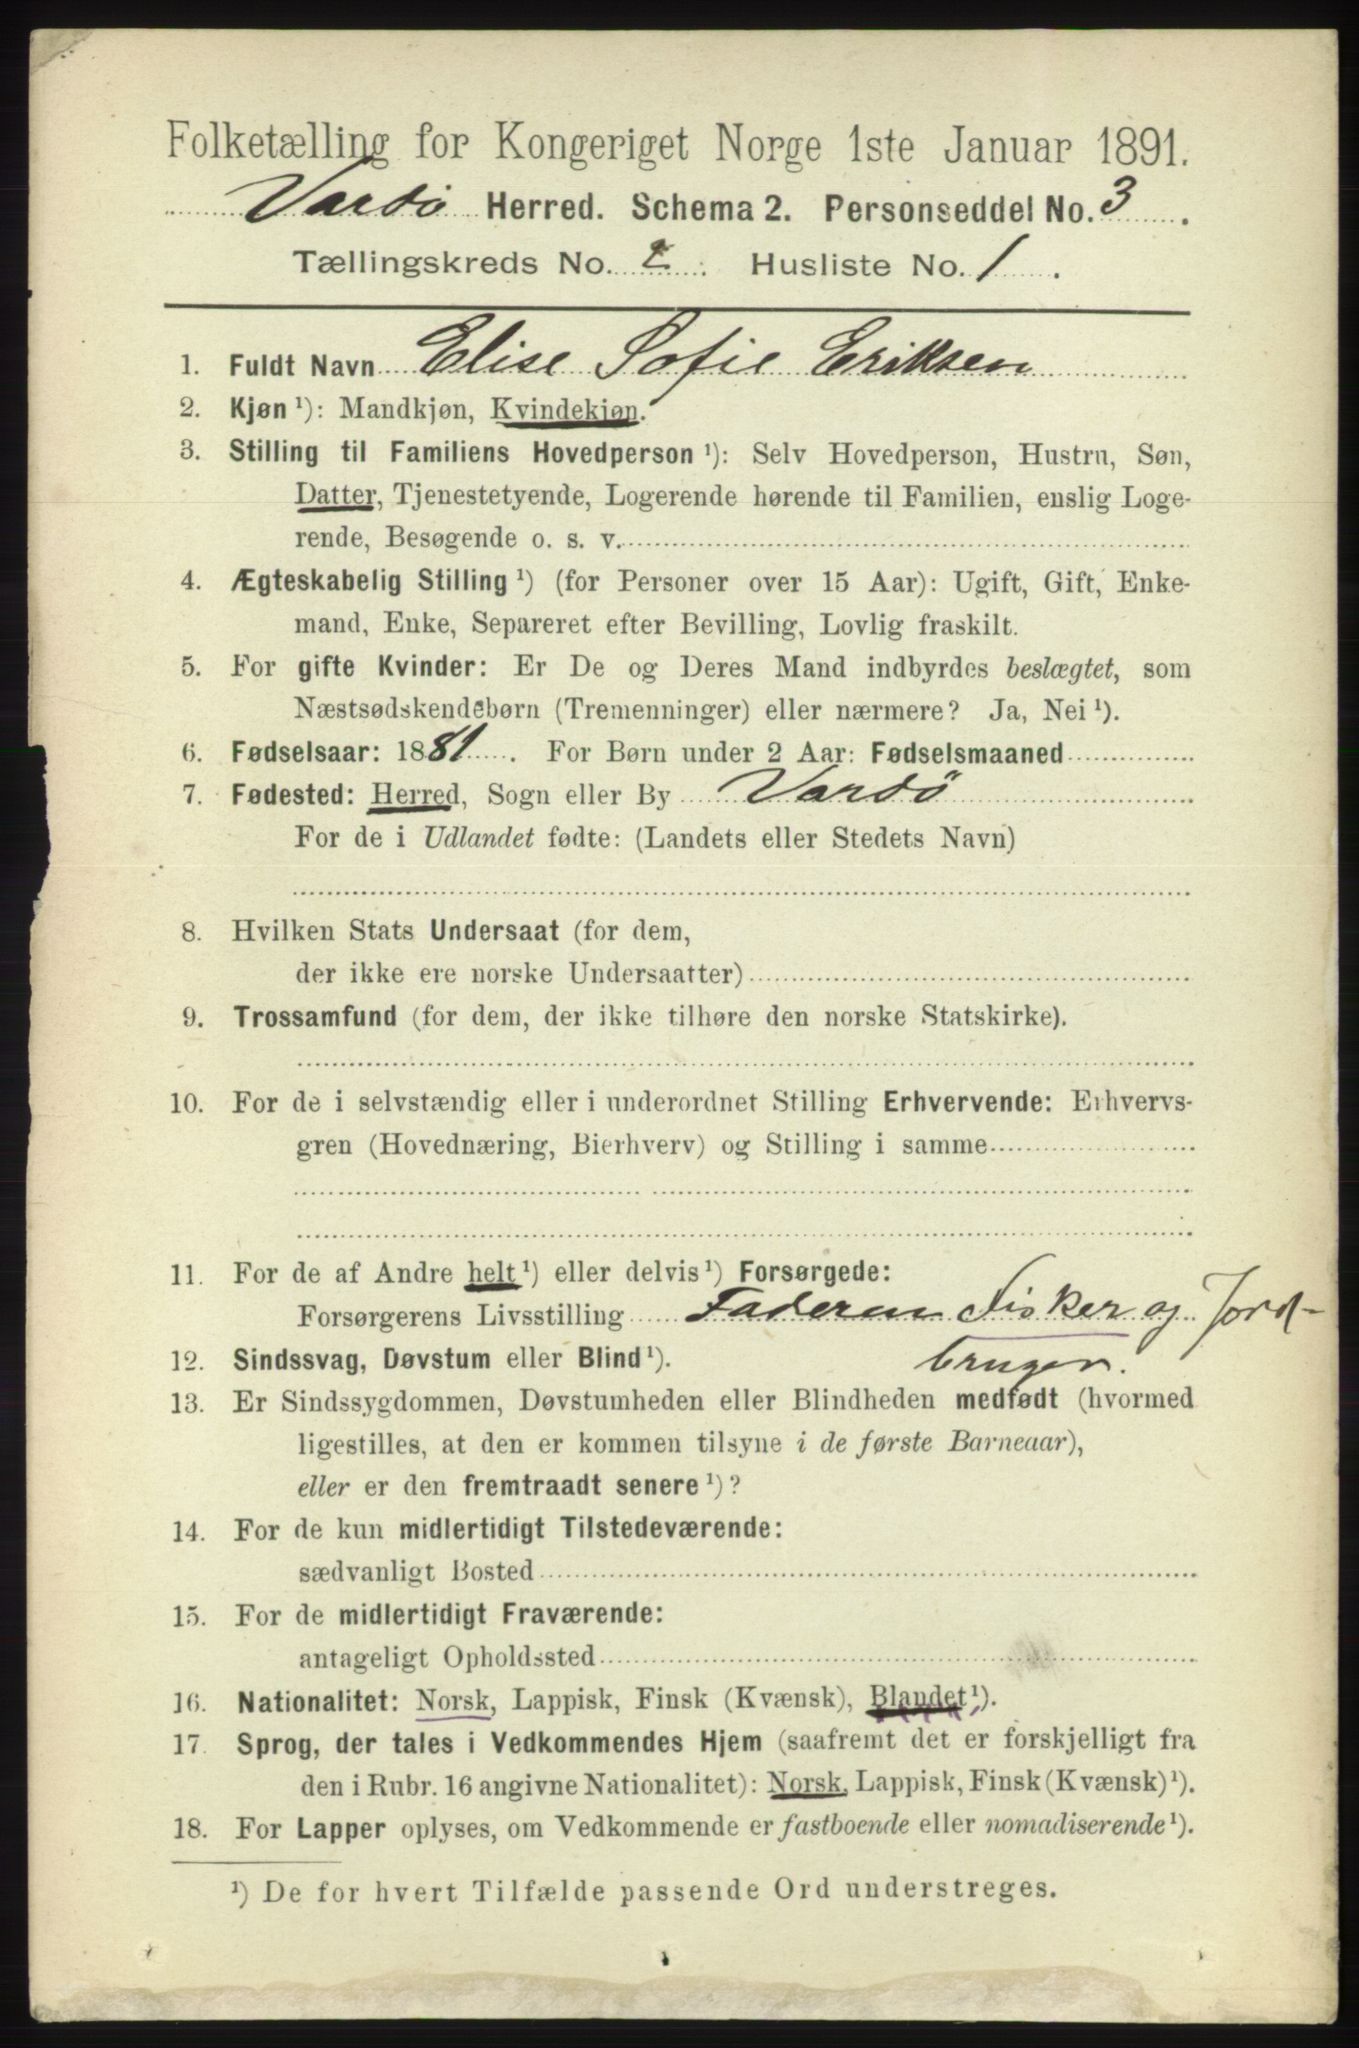 Folketælling for Kongeriget Norge 1ste Januar 1891.
Vardö Herred. Schema 2. Personseddel No. 3.
Tællingskreds No. 2. Husliste No. 1.
1. Fuldt Navn Elise Sofie Eriksen
2. Kjøn ¹): Mandkjøn, Kvindekjøn.
3. Stilling til Familiens Hovedperson ¹): Selv Hovedperson, Hustru, Søn,
Datter, Tjenestetyende, Logerende hørende til Familien, enslig Loge-
rende, Besøgende o. s. v.
4. Ægteskabelig Stilling ¹) (for Personer over 15 Aar): Ugift, Gift, Enke-
mand, Enke, Separeret efter Bevilling, Lovlig fraskilt.
5. For gifte Kvinder: Er De og Deres Mand indbyrdes beslægtet, som
Næstsødskendebørn (Tremenninger) eller nærmere? Ja, Nei ¹).
6. Fødselsaar: 1881. For Børn under 2 Aar: Fødselsmaaned
7. Fødested: Herred, Sogn eller By Vardö
For de i Udlandet fødte: (Landets eller Stedets Navn)
8. Hvilken Stats Undersaat (for dem,
der ikke ere norske Undersaatter)
9. Trossamfund (for dem, der ikke tilhøre den norske Statskirke).
10. For de i selvstændig eller i underordnet Stilling Erhvervende: Erhvervs-
gren (Hovednæring, Bierhverv) og Stilling i samme
11. For de af Andre helt ¹) eller delvis ¹) Forsørgede:
Forsørgerens Livsstilling Faderen Fisker og Jord-
bruger.
12. Sindssvag, Døvstum eller Blind ¹).
13. Er Sindssygdommen, Døvstumheden eller Blindheden medfødt (hvormed
ligestilles, at den er kommen tilsyne i de første Barneaar),
eller er den fremtraadt senere ¹)?
14. For de kun midlertidigt Tilstedeværende:
sædvanligt Bosted
15. For de midlertidigt Fraværende:
antageligt Opholdssted
16. Nationalitet: Norsk, Lappisk, Finsk (Kvænsk), Blandet ¹).
17. Sprog, der tales i Vedkommendes Hjem (saafremt det er forskjelligt fra
den i Rubr. 16 angivne Nationalitet): Norsk, Lappisk, Finsk (Kvænsk) ¹).
18. For Lapper oplyses, om Vedkommende er fastboende eller nomadiserende ¹).
¹) De for hvert Tilfælde passende Ord understreges.